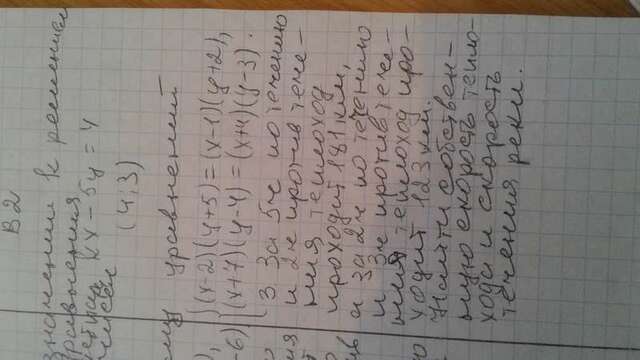 В 2
значении к решением
уравнения
kx - 5y = 4
(4; 3)
уравнений
(x-2)(y+5)=(x-1)(y+2),
(x+7)(y-4)=(x+4)(y-3).
3 За 5ч по течению
и 2ч против тече-
ния теплоход
проходит 181 км,
а за 2ч по течению
и 3ч против тече-
ния теплоход про-
ходит 123 км.
Найти собствен-
ную скорость тепло-
хода и скорость
течения реки.